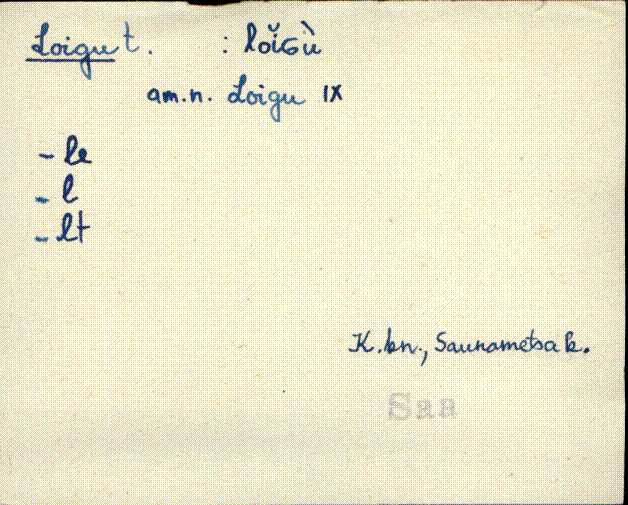 Loigu t. : loĭɢù
am.n. Loigu IX
- le
- l
- lt
K.kn., Saunametsa k.
Saa